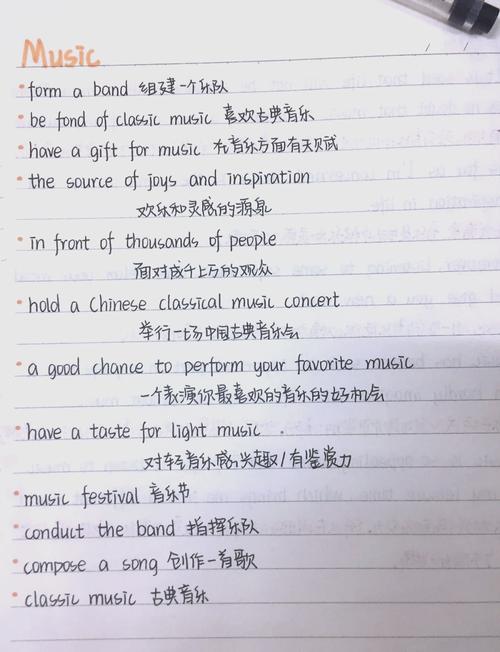 Music
form a band 组建一个乐队
be fond of classic music 喜欢古典音乐
have a gift for music 在音乐方面有天赋
the source of joys and inspiration
欢乐和灵感的源泉
in front of thousands of people
面对成千上万的观众
hold a Chinese classical music concert
举行一场中国古典音乐会
a good chance to perform your favorite music
一个表演你最喜欢的音乐的好机会
have a taste for light music .
对轻音乐感兴趣/有鉴赏力
music festival 音乐节
conduct the band 指挥乐队
compose a song 创作一首歌
classic music 古典音乐